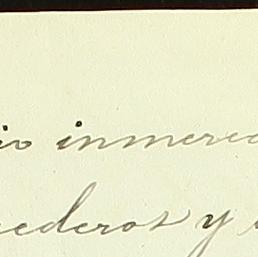 io inmerec
ederos y